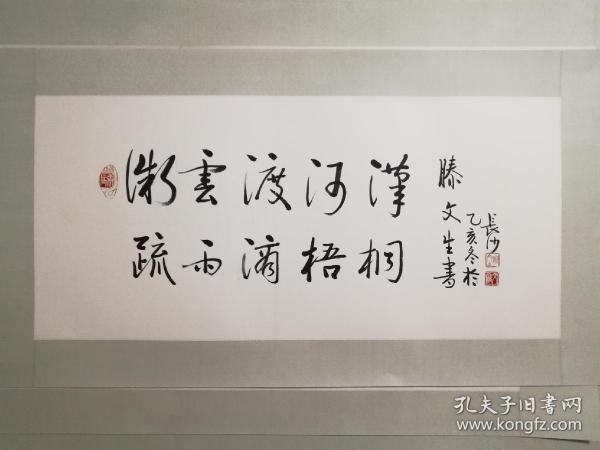 微雲渡河漢
疏雨滴梧桐
滕文生書
乙亥冬於
長沙
孔夫子旧书网
www.kongfz.com